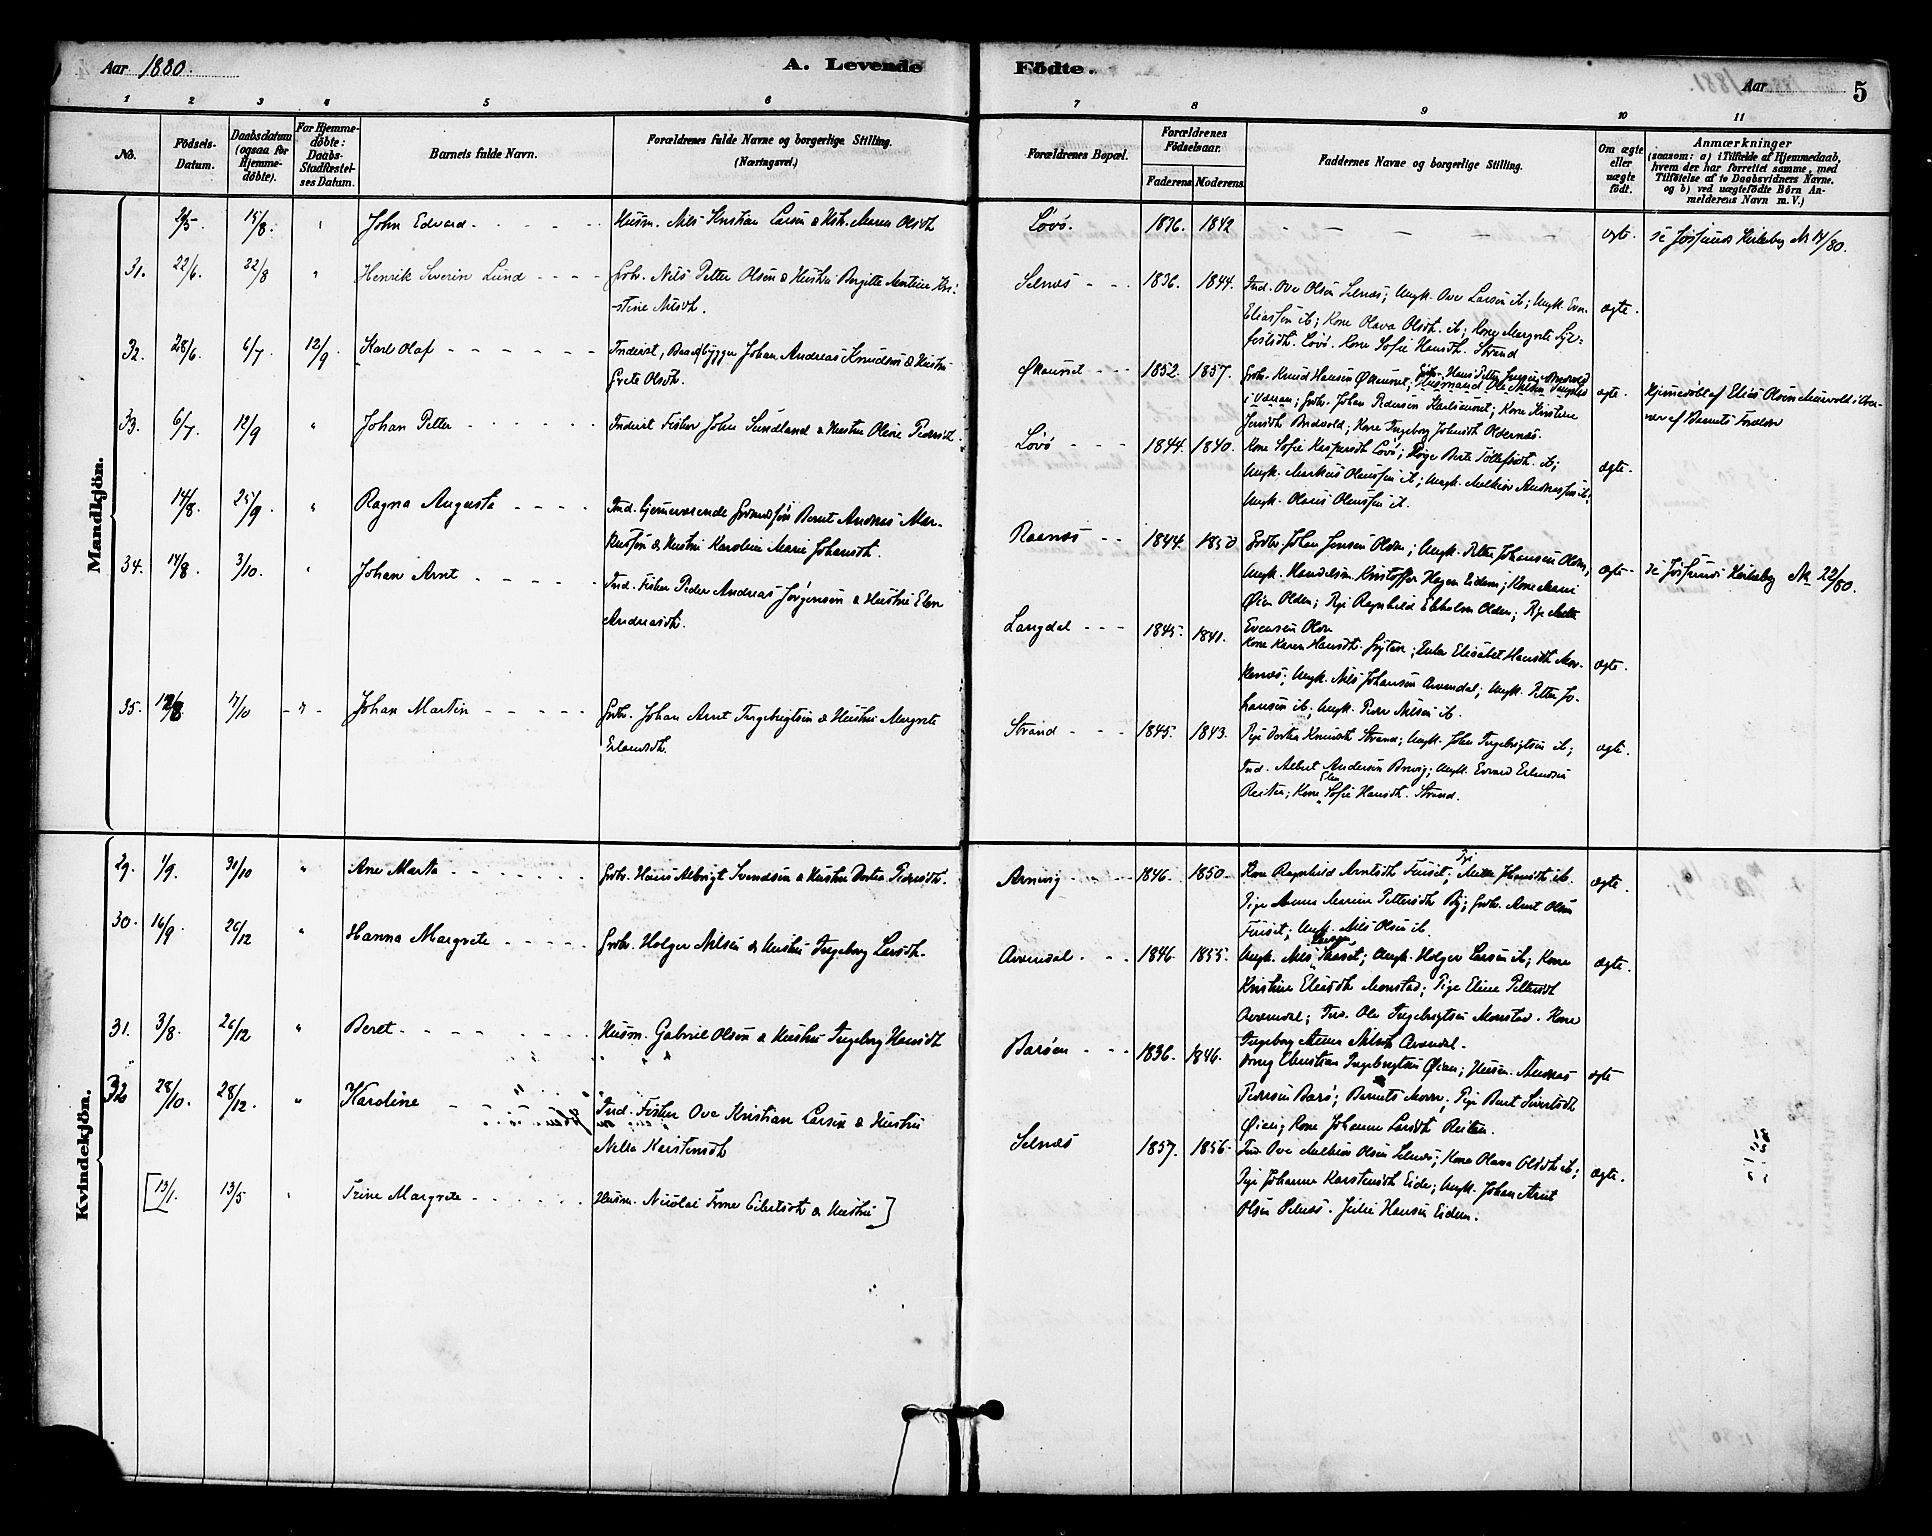 Aar 1880.
A. Levende Födte.
Aar
5
1 2 3 4 5 6 7 8 9 10 11
No.
Födsels-Datum.
Daabsdatum (ogsaa for Hjemme-døbte).
For Hjemme-døbte: Daabs-Stadfæstel-ses Datum.
Barnets fulde Navn.
Forældrenes fulde Navne og borgerlige Stilling.
(Næringsvei.)
Forældrenes Bopæl.
Forældrenes Födselsaar.
Faderens. Moderens.
Faddernes Navne og borgerlige Stilling.
Om ægte eller uægte født.
Anmærkninger
(saasom: a) i Tilfælde af Hjemmedaab, hvem der har forrettet samme, med Tilføielse af to Daabsvidners Navne, og b) ved uægtefödte Börn An-melderens Navn m. V.)
Mandkjön.
15/8. John Edvard
Husm. Nils Kristian Larsen & Hst. Maren Olsdth
Lövö. 1836. 1842 ægte. se Jössunds Kirkebog № 14/80.
31. 22/6. 22/8 " Henrik Severin Lund
Gbr. Nils Petter Olsen & Hustru Birgitte Martine Kri-
stine Nilsdth.
Selnæs 1836. 1844.
Ind. Ove Olsen Selnæs; Ungk. Ove Larsen ib; Ungk.
Eliassen ib; Kone Olava Olsdth. ib; Kone Margrete
Lövö. Kone Sofie Hansdth. Strand
ægte.
32. 28/6. 6/7 12/9. Karl Olaf
Inderst, Baadbygger Johan Andreas Knudsen & Hustru
Grete Olsdth.
1852. 1857.
Gbr. Knud Hansen
Gbr. Johan Pedersen
Kone Ingeborg Johnsdth Oldernæs.
ægte. Hjemmedöbt af Elias Olsen
af Barnets Forældre
33. 6/7 12/9 " Johan Petter
Inderst Fisker John Sundland & Hustru Oline Pedersdt.
Lövö 1844. 1840.
Kone Sofie Kaspersdth Lövö; Pige Berte Tollefsdth. ib;
Ungk. Markus Olaussen ib; Ungk. Melkior Andreassen ib;
Ungk. Olaus Olaussen ib.
ægte.
14/8. 25/9 " Ragna Augusta
Ind. hjemværende Bernt Andreas Mar-
kussen & Hustru Karoline Marie Johansdth.
Raanæs 1844. 1850
Gbr Johan Jensen Olden; Ungk. Petter Johansen Olden,
Ungk. Handelsm. Kristoffer Hagen Eidem; Kone Marie
Öien Olden; Pige Ragnhild Ekholm Olden; Pige Mette
Evensen Olden
ægte se Jössunds Kirkebog № 22/80.
34. 14/8. 3/10. Johan Arnt
Ind. Fisker Peder Andreas Jörgensen & Hustru Elen
Andreasdth.
Langdal 1845. 1841.
Kone Karen Hansdth. ; Enke Elisabet Hansdth
Ungk. Nils Johansen Arnendal; Ungk. Petter Jo-
hansen ib, Ungk. Peder Nilsen ib.
ægte.
35. 17/10 Johan Martin
Gbr. Johan Arnt Ingebrigtsen & Hustru Margrete
Erlandsdth.
Strand 1845. 1843.
Pige Dortea Knudsdth Strand; Ungk. John Ingebrigtsen ib;
Ind. Albert Andersen; Ungk. Edvard Erlandsen
Reiten; Kone Elen Sofie Hansdth. Strand.
ægte.
Kvindekjön.
29. 1/9. 31/10 " Ane Marta
Gbr. Hans Albrigt Svendsen & Hustru Dortea Pedersdth.
Arnevig 1846. 1850
Kone Ragnhild Arntsdth Furset; Pige ib.
Pige Anna Marine Pettersdth By; Gbr. Arnt Olsen
Furset; Ungk. Nils Olsen ib.
ægte.
30. 16/9 26/12 " Hanna Margrete
Gbr. Holger Nilsen & Hustru Ingeborg Larsdth.
Arnendal 1846 1855.
Ungk. Nils Larsen; Ungk. Holger Larsen ib; Kone
Kristine Eliasdth Monstad; Pige Eline Pettersdth
Arnendal; Ind. Ole Ingebrigtsen Monstad. Kone
Ingeborg Anna Nilsdth Arnendal.
ægte.
31. 3/8. 26/12 " Beret
Husm. Gabriel Olsen & Hustru Ingeborg Hansdth
Barsöen 1836. 1846.
Ungk Christian Ingebrigtsen Öien; Husm. Andreas
Pedersen Barsö; Barnets Moder; Pige Beret Sivertsdth
Öien; Kone Johanna Larsdth Reiten.
ægte
32 28/10. 28/12. " Karoline
Ind. Fisker Ove Kristian Larsen & Hustru
Nilla Karstensdth
Selnæs 1857. 1856
Ind Ove Melkior Olsen Selnæs; Kone Olava Olsdth ib;
Pige Johanna Karstensdth Eide; Ungk. Johan Arnt
Olsen Selnæs. Julie Hansen Eidem.
ægte.
[13/1. 13/5 Trine Margrete
Husm. Nicolai & Hustru ]